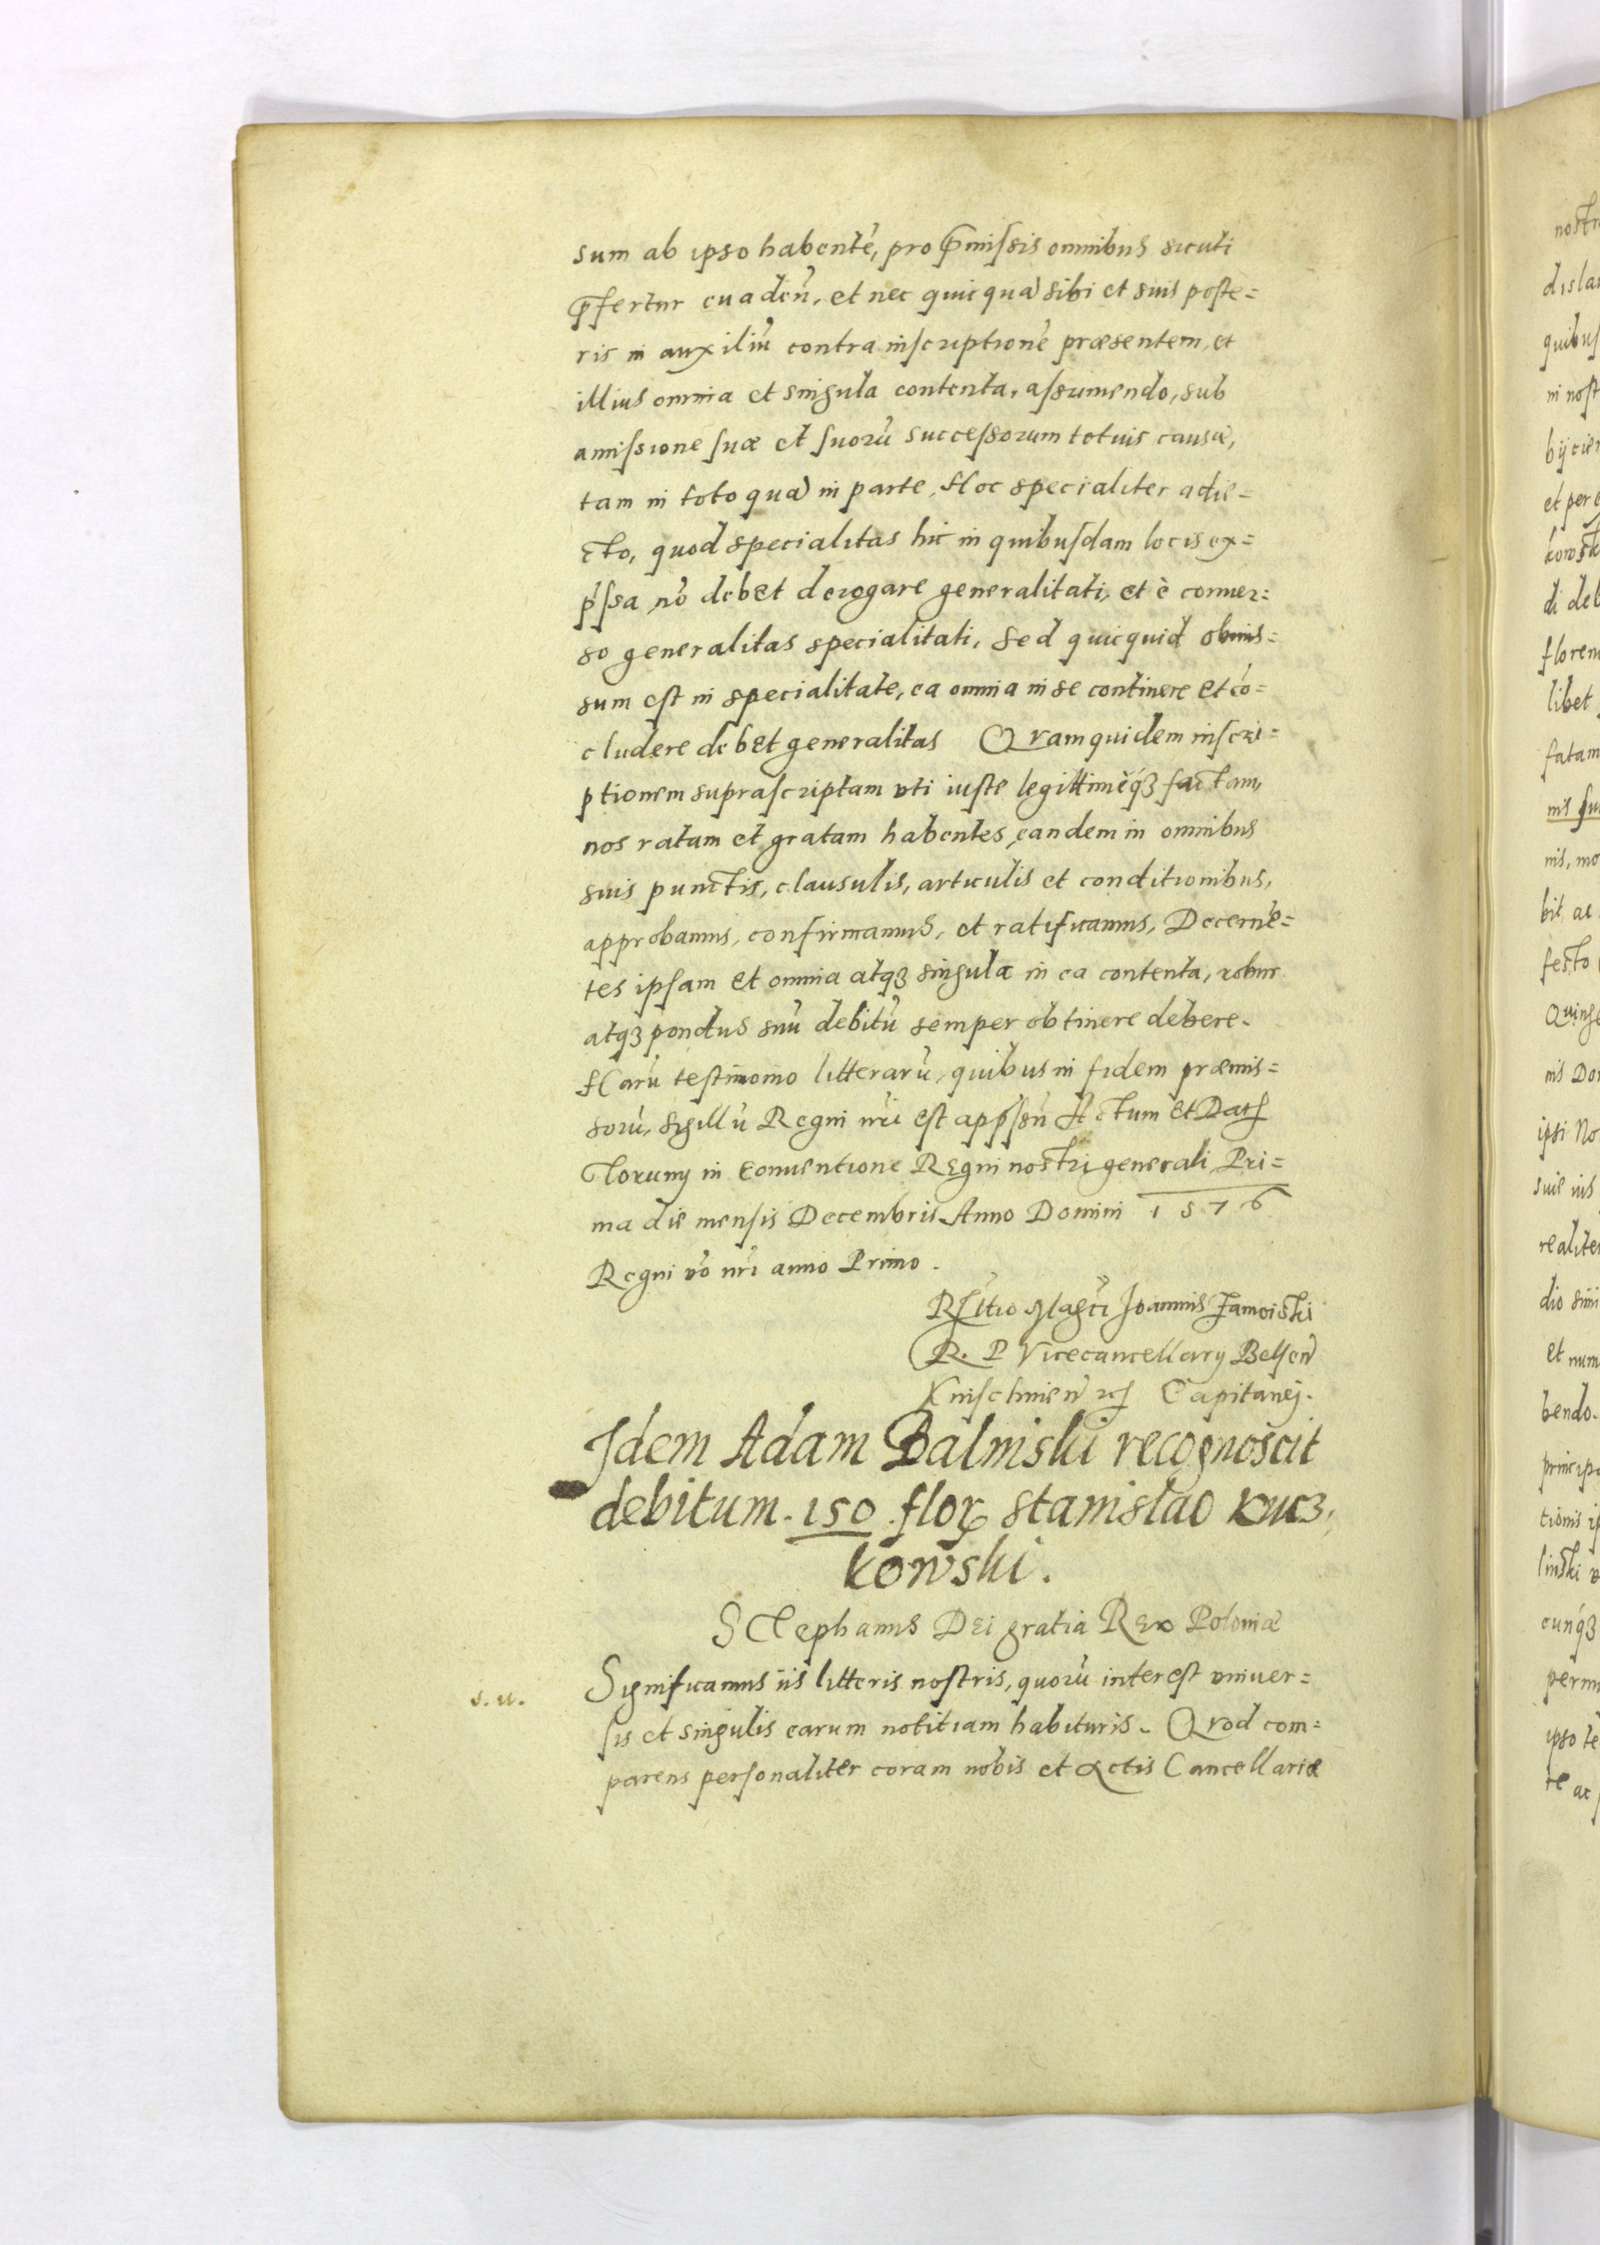 sum ab ipso habentē, pro p̄missis omnibus sicuti
p̄fertur euadeñ, et nec quicquā sibi et suis poste=
ris in auxiliū contra inscriptionē præsentem, et
illius omnia et singula contenta, assumendo, sub
amissione suæ et suorū successorum totius causæ,
tam in toto quā in parte, Hoc specialiter adie=
cto, quod specialitas hic in quibusdam locis ex=
p̄ssa nō debet derogare generalitati, et è conuer=
so generalitas specialitati, sed quicquid obmis=
sum est in specialitate, ea omnia in se continere et cō=
cludere debet generalitas Quam quidem inscri=
ptionem suprascriptam vti iuste legittimèq́ꝫ factam,
nos ratam et gratam habentes, eandem in omnibus
suis punctis, clausulis, articulis et conditionibus,
approbamus, confirmamus, et ratificamus, Decernē=
tes ipsam et omnia atqꝫ singula in ea contenta, robur
atqꝫ pondus suū debitū semper obtinere debere.
Harū testimonio litterarū, quibus in fidem præmis=
sorū, Sigillū Regni nr̄i est app̄ssū Actum et Datū
Toruny in Conuentione Regni nostri generali Pri=
ma die mensis Decembris Anno Domini 1576
Regni vō nr̄i anno Primo.
Rl̄tio Magc̄i Joannis Zamoiski
R. P Vicecancellary Belzeñ
Knischineñ Capitanej.
Idem Adam Balinski recognoscit
debitum .150. florꝝ Stanislao Kucz
kowski.
Stephanus Dei gratia Rex Poloniæ
s. u.
Significamus iis litteris nostris, quorū interest vniuer=
sis et singulis earum notitiam habituris. Quod com=
parens personaliter coram nobis et Actis Cancellariæ